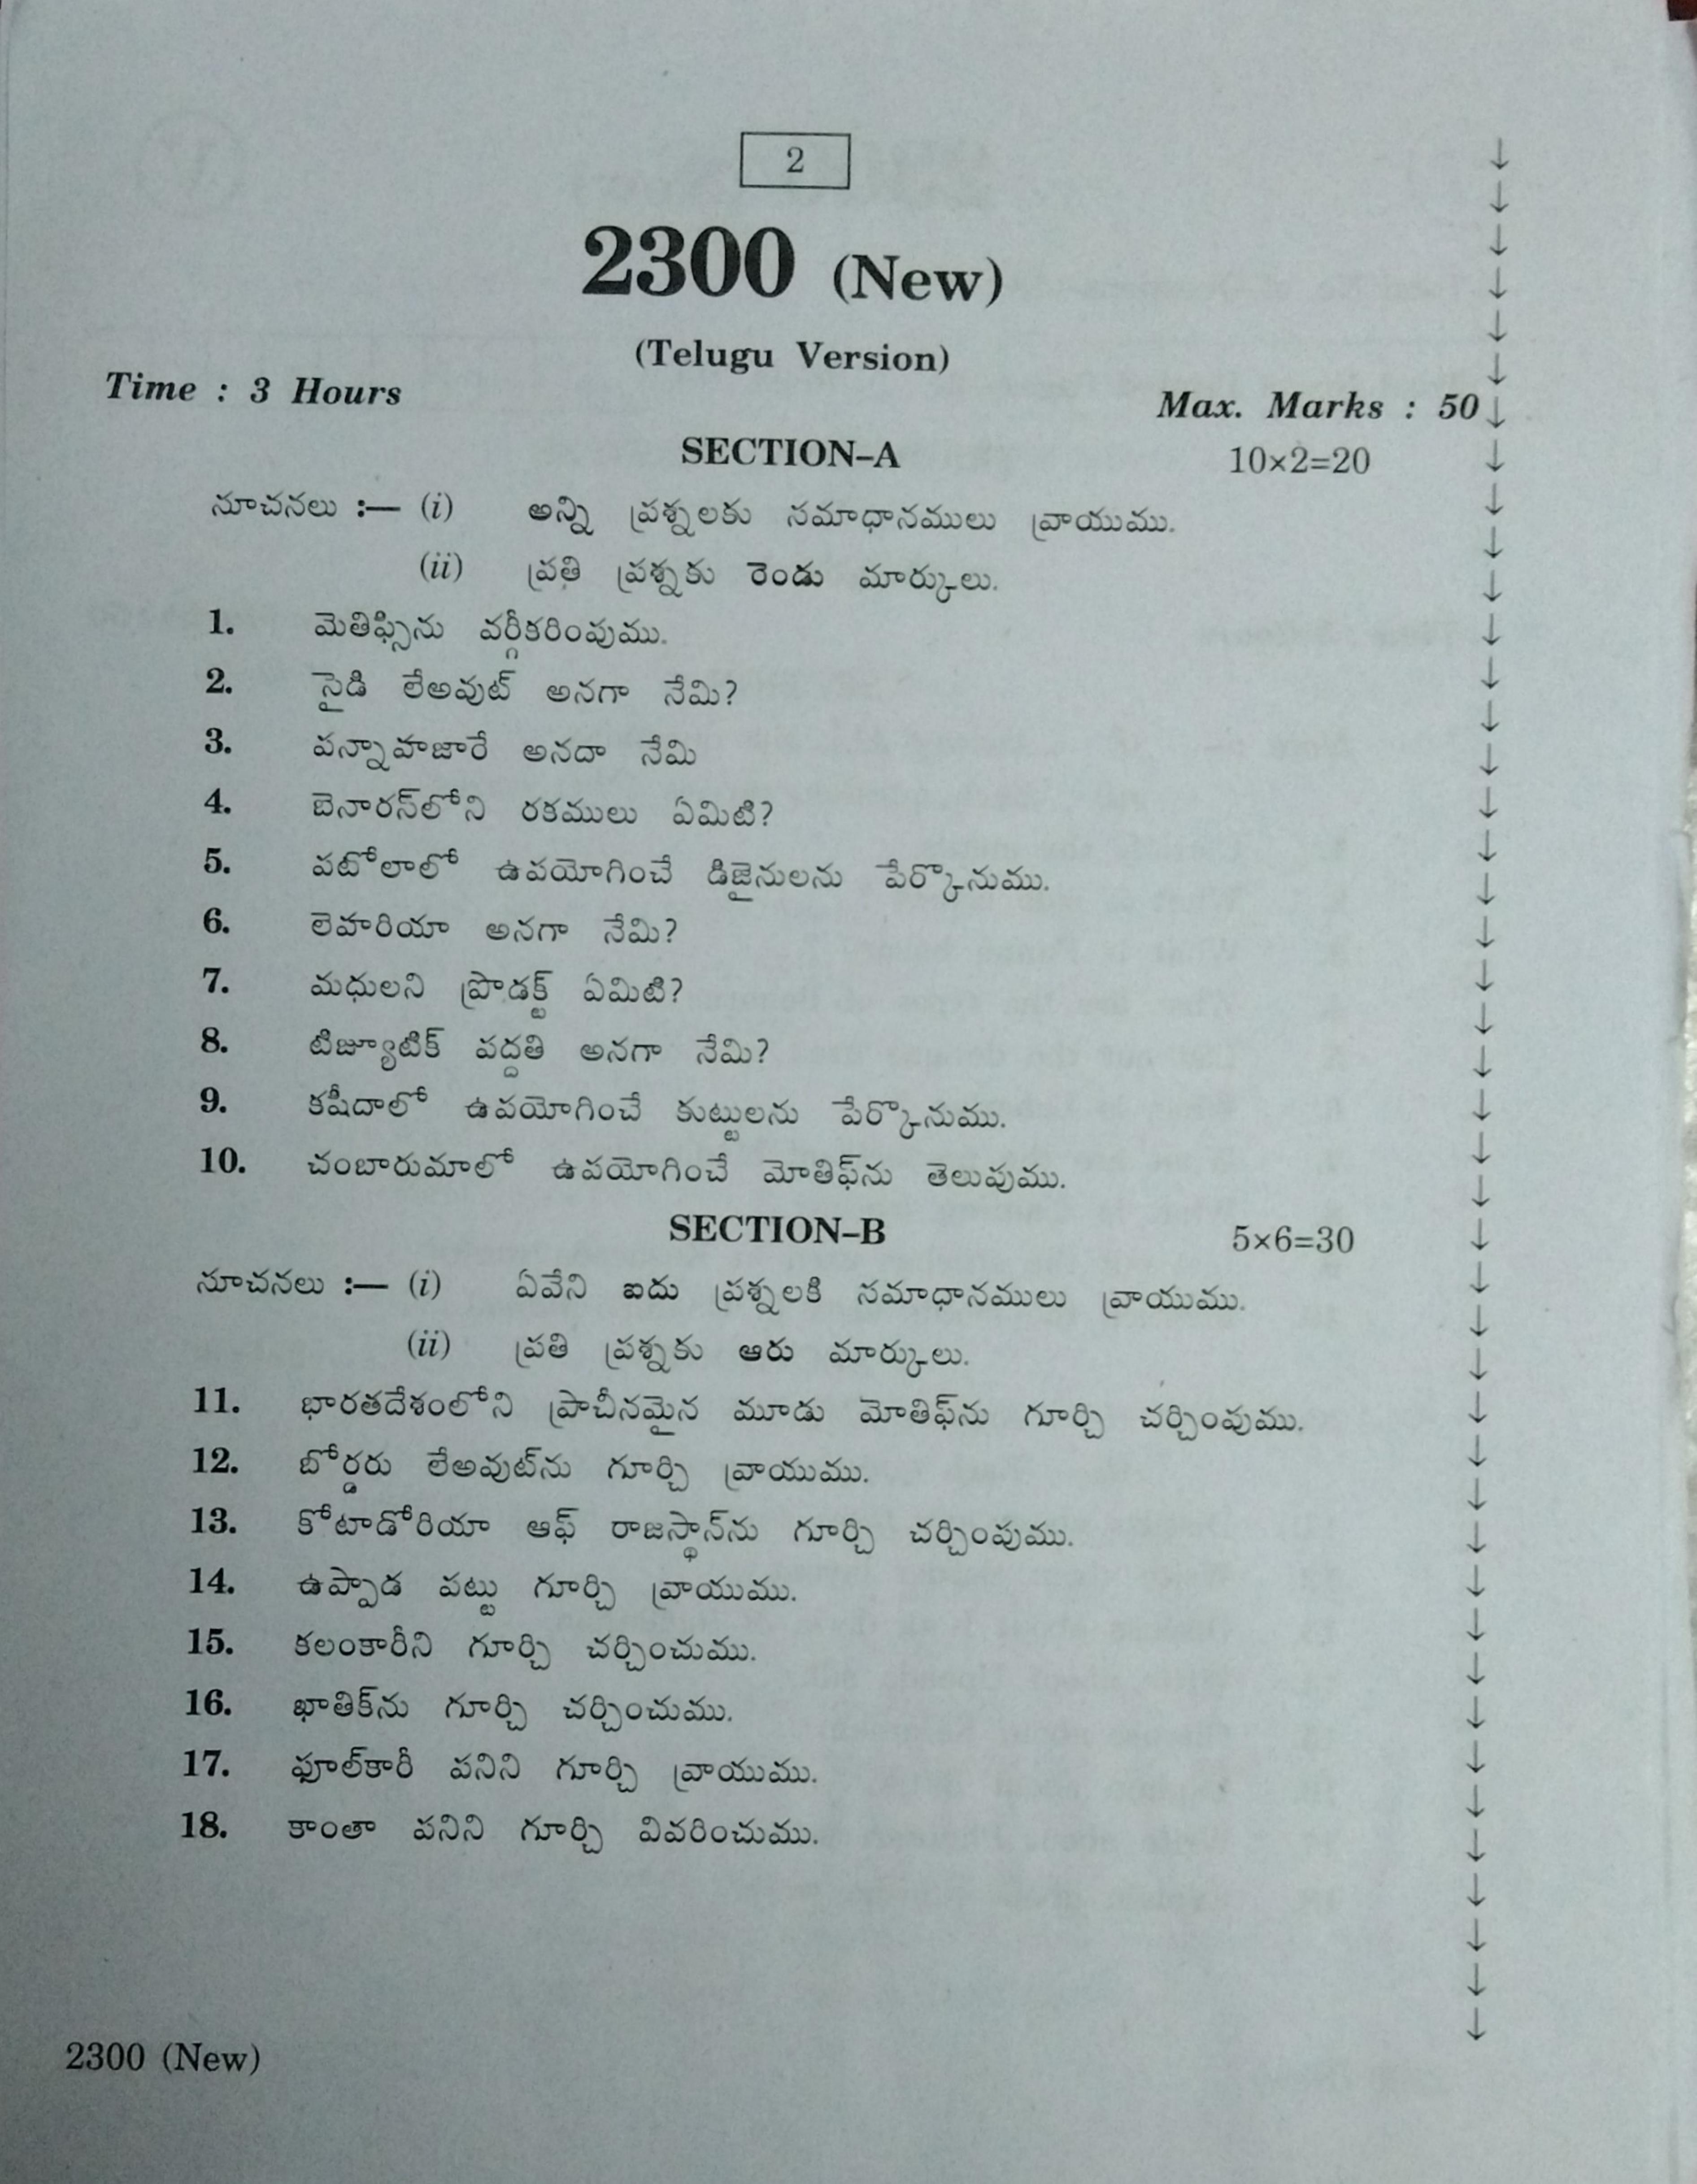 2
2300 (New)
(Telugu Version)
Time : 3 Hours
Max. Marks : 50
SECTION–A 10×2=20
సూచనలు :— (i) అన్ని ప్రశ్నలకు సమాధానములు వ్రాయుము.
(ii) ప్రతి ప్రశ్నకు రెండు మార్కులు.
1. మెతిఫ్సిను వర్గీకరింపుము.
2. సైడి లేఅవుట్ అనగా నేమి?
3. పన్నాహజారే అనదా నేమి
4. బెనారస్‌లోని రకములు ఏమిటి?
5. పటోలాలో ఉపయోగించే డిజైనులను పేర్కొనుము.
6. లెహరియా అనగా నేమి?
7. మధులని ప్రొడక్ట్ ఏమిటి?
8. టిజ్యూటిక్ పద్దతి అనగా నేమి?
9. కషీదాలో ఉపయోగించే కుట్టులను పేర్కొనుము.
10. చంబారుమాలో ఉపయోగించే మోతిఫ్‌ను తెలుపుము.
SECTION–B 5×6=30
సూచనలు :— (i) ఏవేని ఐదు ప్రశ్నలకి సమాధానములు వ్రాయుము.
(ii) ప్రతి ప్రశ్నకు ఆరు మార్కులు.
11. భారతదేశంలోని ప్రాచీనమైన మూడు మోతిఫ్‌ను గూర్చి చర్చింపుము.
12. బోర్డరు లేఅవుట్‌ను గూర్చి వ్రాయుము.
13. కోటాడోరియా ఆఫ్ రాజస్థాన్‌ను గూర్చి చర్చింపుము.
14. ఉప్పాడ పట్టు గూర్చి వ్రాయుము.
15. కలంకారీని గూర్చి చర్చించుము.
16. ఖాతిక్‌ను గూర్చి చర్చించుము.
17. ఫూల్‌కారీ పనిని గూర్చి వ్రాయుము.
18. కాంతా పనిని గూర్చి వివరించుము.
2300 (New)